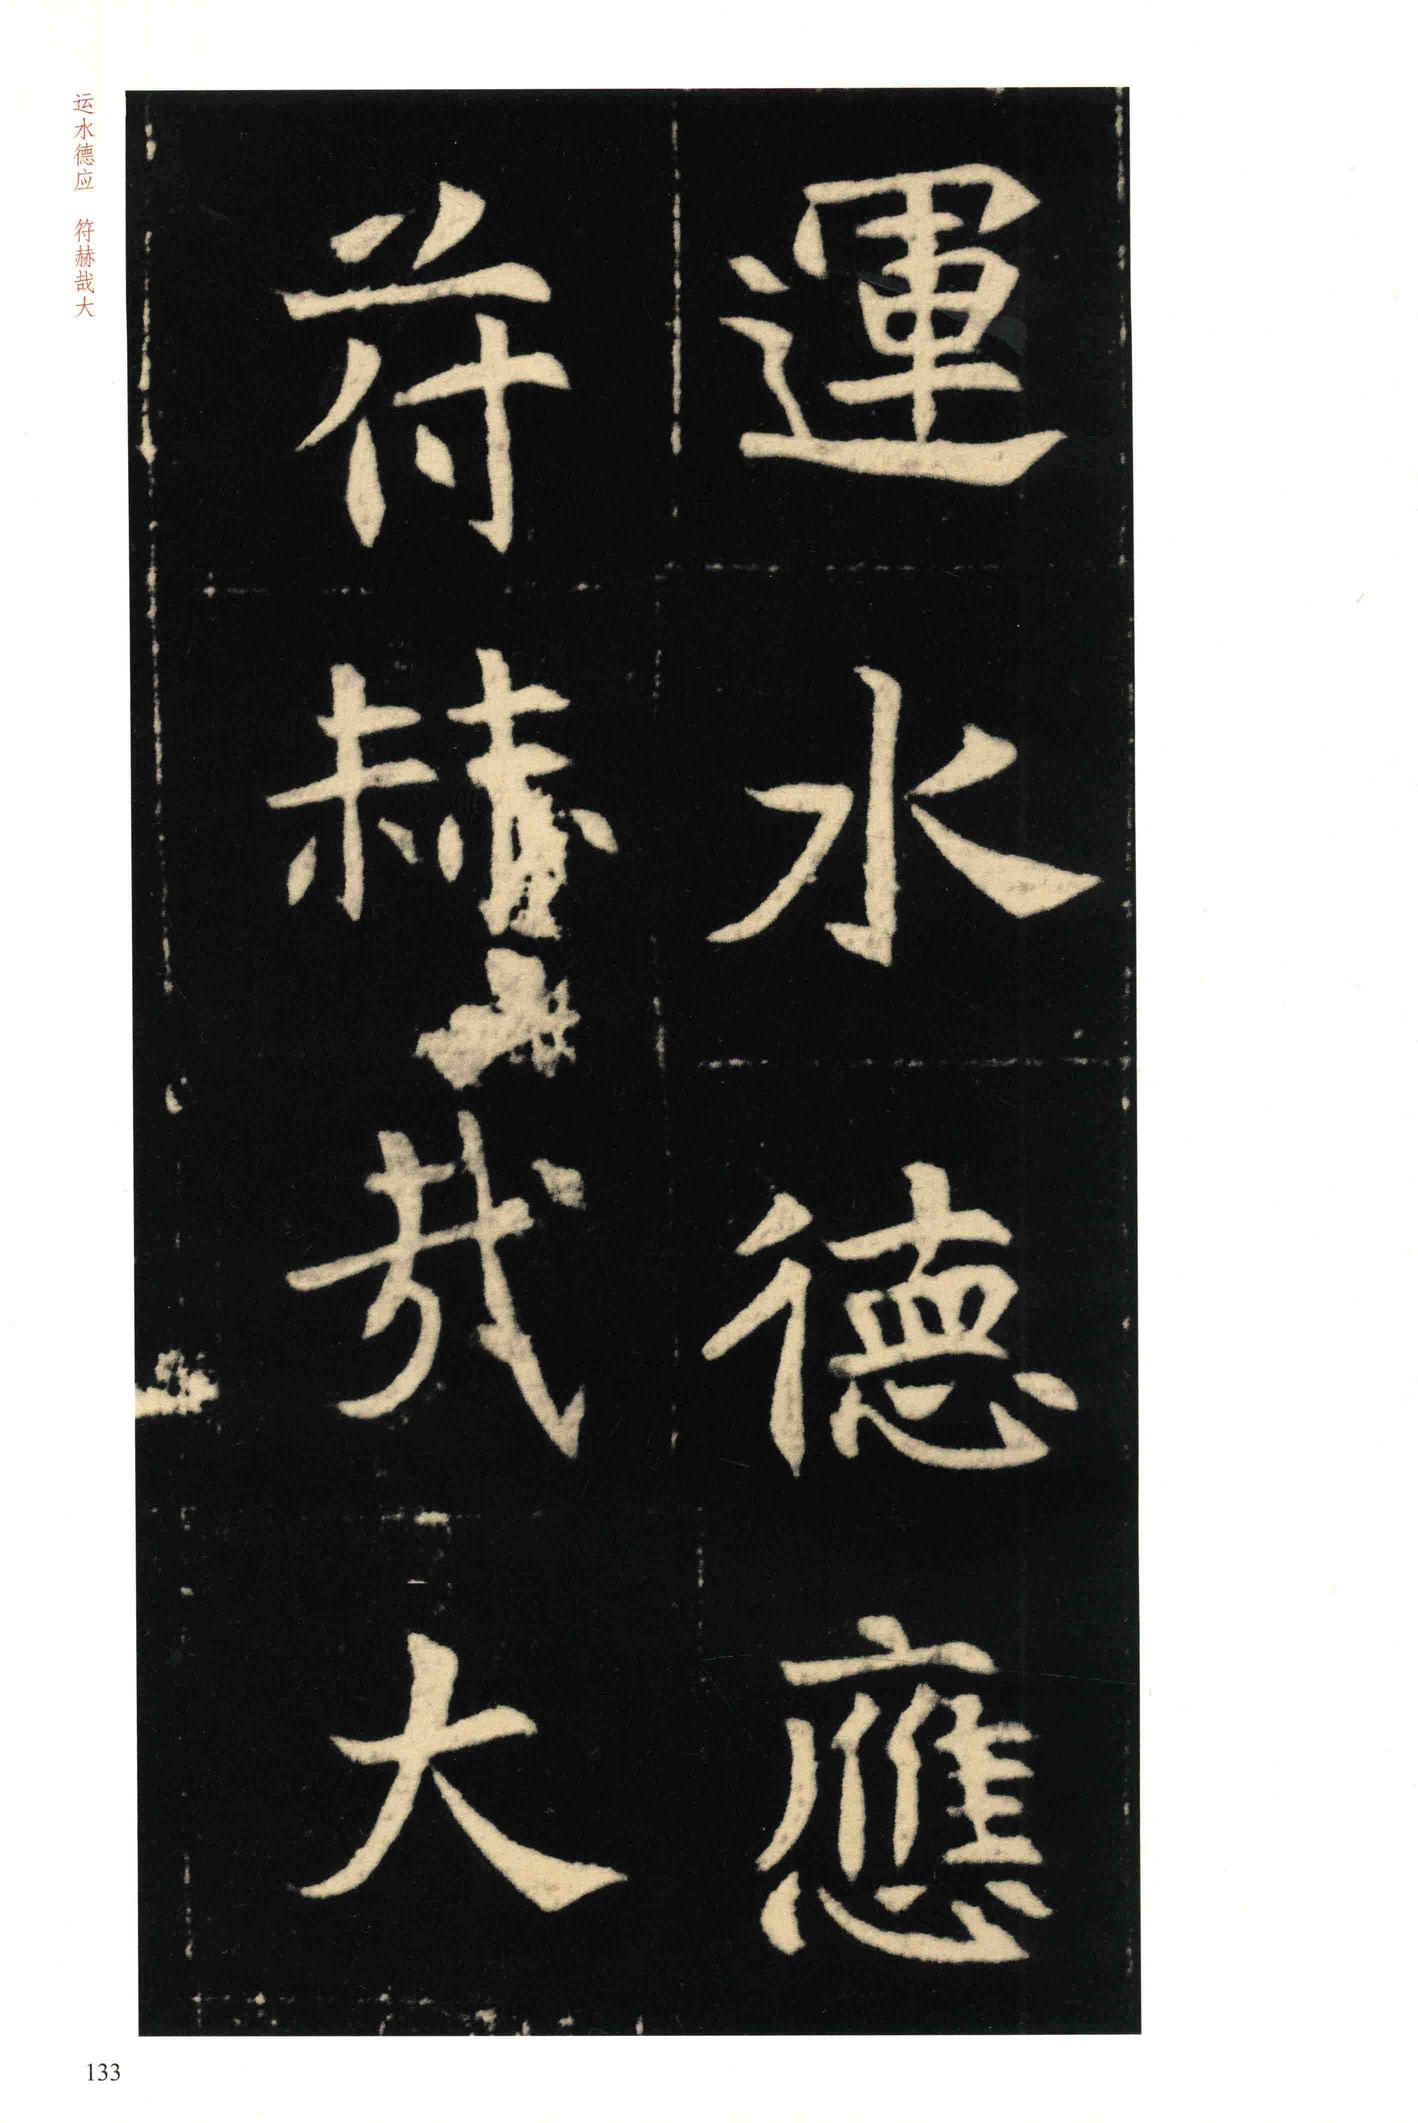 運水德應
符赫哉大
运水德应 符赫哉大
133